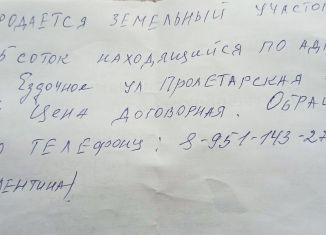 РОДАЕТСЯ ЗЕМЕЛЬНЫЙ УЧАСТО
5 СОТОК НАХОДЯЩИЙСЯ ПО АД
Ездочное УЛ ПРОЛЕТАРСКАЯ
ЦЕНА ДОГОВОРНАЯ. ОБРАЩ
О ТЕЛЕФОНУ: 8-951-143-27
ЛЕНТИНА/